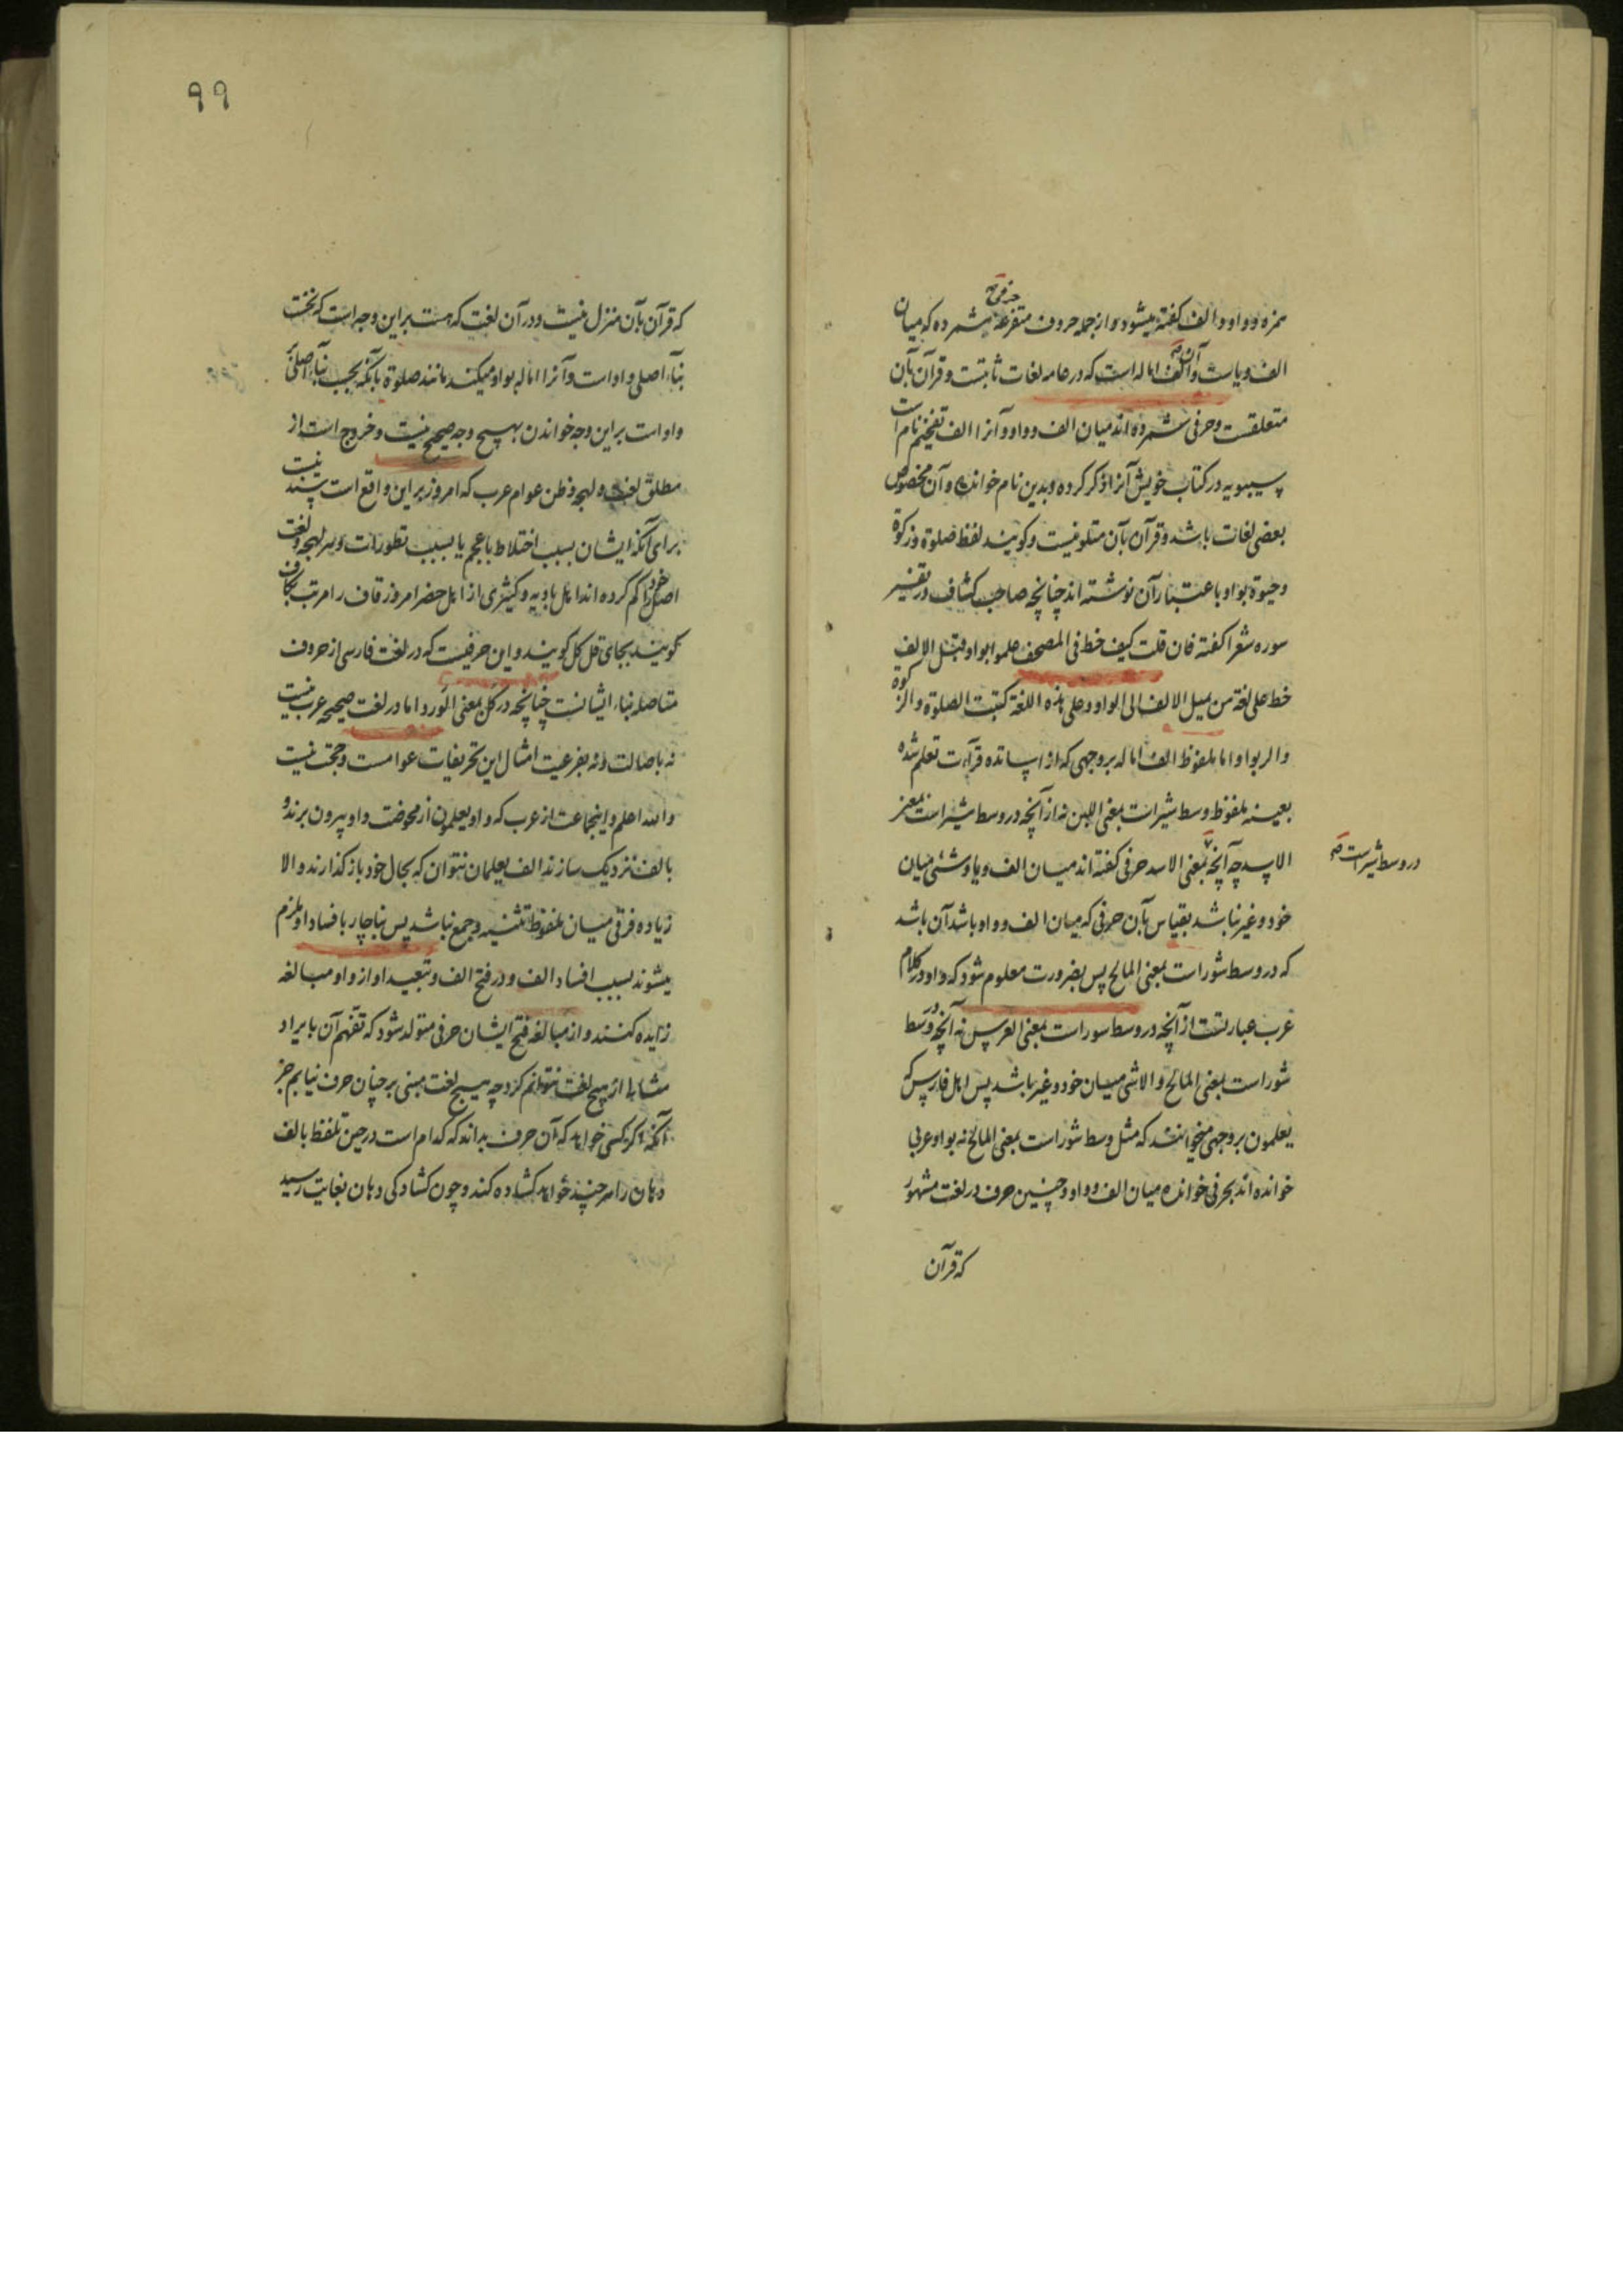 همزه و واو و الف گفته میشود و از جمله حروف متفرعه حرفی شمرده که میان
الف و یاست و آن الف اماله است که در عامه لغات ثابتست و قرآن بآن
متعلقست و حرفی شمرده اند میان الف و واو و آنرا الف تفخیم نام است
سیبویه در کتاب خویش آنرا ذکر کرده و بدین نام خوانده و آن مخصوص
بعضی لغات باشد و قرآن بآن متلو نیست و گویند لفظ صلوة و زکوة
و حیوة بواو باعتبار آن نوشته اند چنانچه صاحب کشاف در تفسیر
سوره شعرا گفته فان قلت کیف خط فی المصحف علموا بواو قبل الالف
خط علی لغة من یمیل الالف الی الواو و علی هذه اللغة کتبت الصلوة و الزکوة
و الربوا و اما تلفظ الف اماله بر وجهی که از اساتذه قرآءت تعلم شده
بعینه تلفظ وسط شیر است بمعنی اللبن نه از آنچه در وسط شیر است بمعنی
الاسد چه آنچه در وسط شیر است بمعنی الاسد حرفی گفته اند میان الف و یا و شئی میان
خود و غیر نباشد بقیاس بآن حرفی که میان الف و واو باشد آن باشد
که در وسط شور است بمعنی المالح پس بضرورت معلوم شود که واو در کلام
عرب عبارتست از آنچه در وسط سور است بمعنی العرس نه آنچه در وسط
شور است بمعنی المالح و الا شی میان خود و غیر باشد پس اهل فارس که
یعلمون بر وجهی میخوانند که مثل وسط شور است بمعنی المالح نه بواو عربی
خوانده اند بحرفی خوانده میان الف و واو و چنین حرف در لغت مشهور
که قرآن
۹۹
که قرآن بآن منزل نیست و در آن لغت که هست بر این وجه است که نخست
بنآء اصلی واو است و آنرا اماله بواو میکند مانند صلوة بآنکه بحسب بنآء اصلی
واو است بر این وجه خواندن بهیچ وجه صحیح نیست و خروج است از
مطلق لغت و لهجه و ظن عوام عرب که امروز بر این واقع است پسند نیست
برای آنکه ایشان بسبب اختلاط با عجم یا بسبب تطورات و سر لهجه و لغت
اصل خود را گم کرده اند اهل بادیه و کثیری از اهل حضر امروز قاف را مرتب بکاف
گویند بجای قل گل گویند و این حرفیست که در لغت فارسی از حروف
متاصله بناء ایشانست چنانچه در گل بمعنی الورد اما در لغت صحیحه عرب نیست
نه باصالت و نه بفرعیت امثال این تحریفات عوامست و حجت نیست
و الله اعلم و اینجماعت از عرب که واو یعلمون از محوضت واو بیرون برند و
بالف نزدیک سازند الف یعلمان نتوان که بحال خود باز گذارند و الا
زیاده فرقی میان تلفظ تثنیه و جمع نباشد پس بناچار بافساد او ملزم
میشوند بسبب افساد الف و در فتح الف و تبعید او از واو مبالغه
زایده کنند و از مبالغه فتح ایشان حرفی متولد شود که تفهم آن بایراد
مشابها از هیچ لغت نتوانم کرد چه هیچ لغت مبنی بر چنان حرف نیابم جز
آنکه اگر کسی خواهد که آن حرف بداند که کدام است در حین تلفظ بالف
دهان را هر چند خواهد گشاده کند و چون گشادگی دهان بغایت رسید